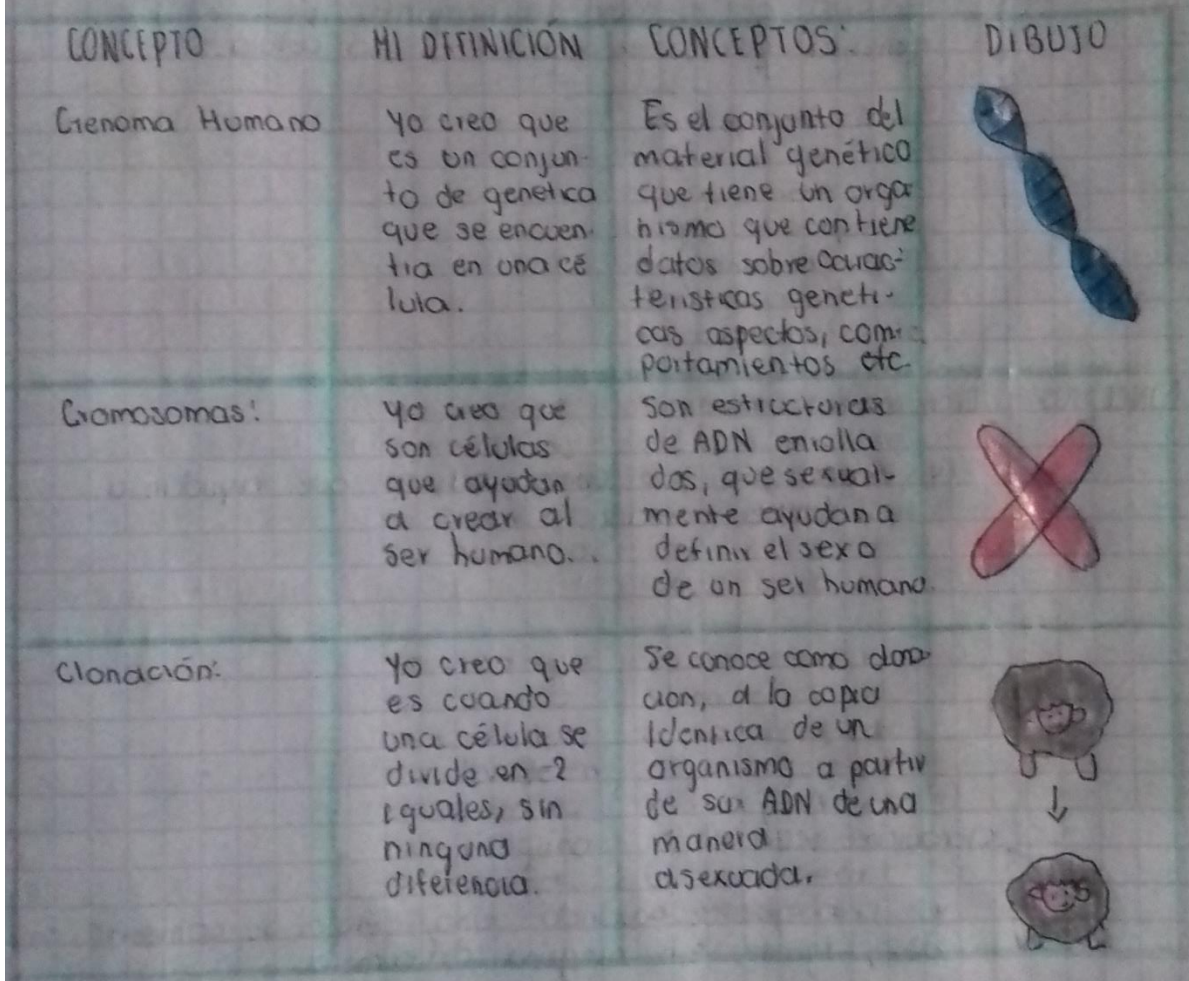 CONCEPTO
MI DEFINICIÓN
CONCEPTOS:
DIBUJO
Genoma Humano
Yo creo que
es un conjun-
to de genetica
que se encuen-
tra en una cé
lula.
Es el conjunto del
material genético
que tiene un orga
nismo que contiene
datos sobre carac-
teristicas geneti-
cas aspectos, com-
portamientos etc.
Cromosomas:
Yo creo que
son células
que ayudan
a crear al
ser humano.
Son estructuras
de ADN enrolla
dos, que sexual-
mente ayudan a
definir el sexo
de un ser humano.
Clonación:
Yo creo que
es cuando
una célula se
divide en 2
iguales, sin
ninguna
diferencia.
Se conoce como clona
cion, a la copia
identica de un
organismo a partir
de su ADN de una
manera
asexuada.